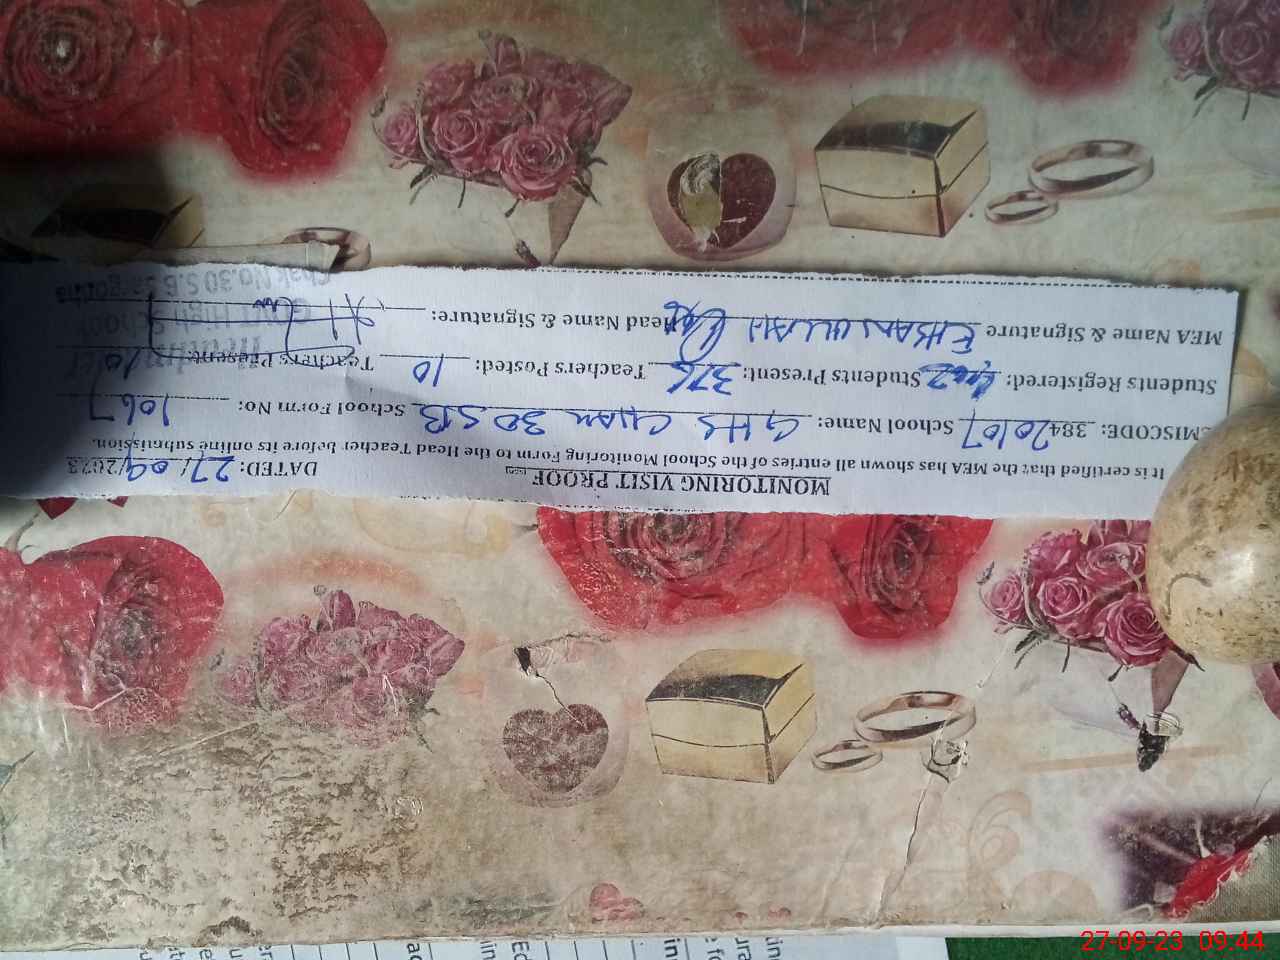 MONITORING VISIT PROOF
DATED: 27/09/2023
It is certified that the MEA has shown all entries of the School Monitoring Form to the Head Teacher before its online submission.
EMISCODE: 384 20107 School Name: GHS CHAK 30 SB School Form No: 1067
Students Registered: Students Present: 376 Teachers Posted: 10 Teachers Present: 10
MEA Name & Signature EHSAN ULLAH Head Name & Signature:
Headmaster
GOVT High School
Chak No.30 S.B Sargodha
27-09-23 09:44